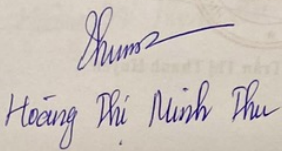 Hoàng Thị Minh Thu